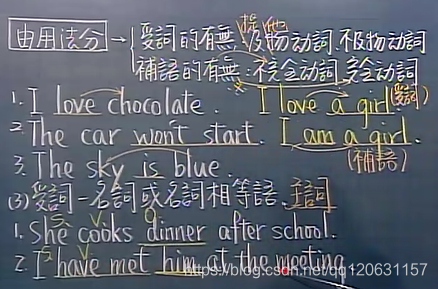 由用法分 → 受詞的有無:及物动詞.不及物动詞
補語的有無:不完全动詞.完全动詞
1. I love chocolate. I love a girl(受詞)
2. The car won't start. I am a girl.
(補語)
3. The sky is blue.
(3)受詞-名詞或名詞相等語.主詞
S V O
1. She cooks dinner after school.
S V
2. I have met him at the meeting
https://blog.csdn.net/qq120631157